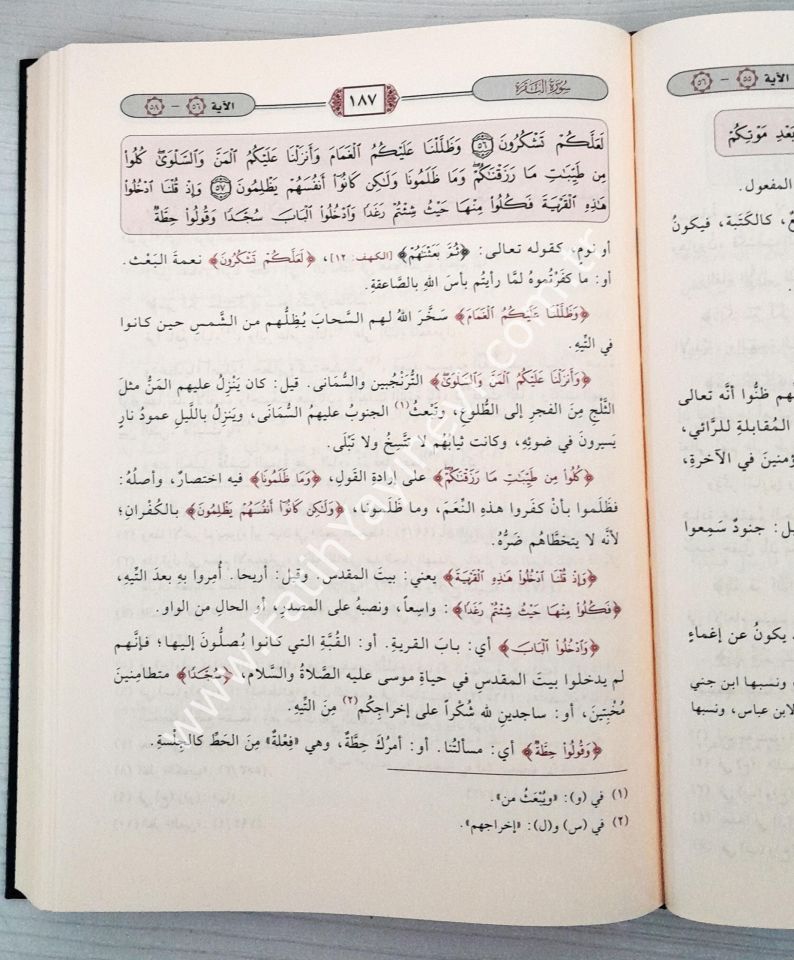 سورة البقرة
١٨٧
الآية ٥٦ - ٥٨
لَعَلَّكُمْ تَشْكُرُونَ ٥٦ وَظَلَّلْنَا عَلَيْكُمُ الْغَمَامَ وَأَنزَلْنَا عَلَيْكُمُ الْمَنَّ وَالسَّلْوَىٰ كُلُوا
مِن طَيِّبَاتِ مَا رَزَقْنَاكُمْ وَمَا ظَلَمُونَا وَلَٰكِن كَانُوا أَنفُسَهُمْ يَظْلِمُونَ ٥٧ وَإِذْ قُلْنَا ادْخُلُوا
هَٰذِهِ الْقَرْيَةَ فَكُلُوا مِنْهَا حَيْثُ شِئْتُمْ رَغَدًا وَادْخُلُوا الْبَابَ سُجَّدًا وَقُولُوا حِطَّةٌ
أو نومٍ، كقوله تعالى: ﴿ثُمَّ بَعَثْنَاهُمْ﴾ [الكهف: ١٢]، ﴿لَعَلَّكُمْ تَشْكُرُونَ﴾ نعمةَ البَعْث.
أو: ما كفَرْتُموهُ لمَّا رأيتُم بأسَ اللهِ بالصاعقةِ.
﴿وَظَلَّلْنَا عَلَيْكُمُ الْغَمَامَ﴾ سَخَّرَ اللهُ لهم السَّحابَ يُظِلُّهم من الشَّمسِ حين كانوا
في التِّيهِ.
﴿وَأَنزَلْنَا عَلَيْكُمُ الْمَنَّ وَالسَّلْوَىٰ﴾ التَّرَنْجبين والسُّمَانى. قيل: كان يَنْزِلُ عليهم المَنُّ مثلَ
الثَّلْجِ مِنَ الفجرِ إلى الطُّلوعِ، وتَبْعثُ(١) الجنوبُ عليهمُ السُّمَانَى، ويَنزِلُ باللَّيلِ عمودُ نارٍ
يَسيرونَ في ضوئِهِ، وكانت ثيابُهم لا تتَّسِخُ ولا تَبْلَى.
﴿كُلُوا مِن طَيِّبَاتِ مَا رَزَقْنَاكُمْ﴾ على إرادةِ القَولِ، ﴿وَمَا ظَلَمُونَا﴾ فيه اختصارٌ، وأصلُهُ:
فظَلَموا بأنْ كفَروا هذهِ النِّعَمَ، وما ظلَمونَا، ﴿وَلَٰكِن كَانُوا أَنفُسَهُمْ يَظْلِمُونَ﴾ بالكُفْرانِ؛
لأنَّه لا يتخطَّاهُم ضَرُّهُ.
﴿وَإِذْ قُلْنَا ادْخُلُوا هَٰذِهِ الْقَرْيَةَ﴾ يعني: بيتَ المقدسِ. وقيل: أريحا. أُمِروا بهِ بعدَ التِّيهِ،
﴿فَكُلُوا مِنْهَا حَيْثُ شِئْتُمْ رَغَدًا﴾: واسعاً، ونصبهُ على المصدرِ، أو الحالِ من الواو.
﴿وَادْخُلُوا الْبَابَ﴾ أي: بابَ القريةِ. أو: القُبَّةِ التي كانوا يُصلُّونَ إليها؛ فإنَّهم
لم يدخلوا بيتَ المقدسِ في حياةِ موسى عليه الصَّلاةُ والسَّلام، ﴿سُجَّدًا﴾ متطامِنينَ
مُخْبِتِينَ، أو: ساجدينِ لله شُكْراً على إخراجِكُم(٢) مِنَ التِّيهِ.
﴿وَقُولُوا حِطَّةٌ﴾ أي: مسألتُنا. أو: أمرُكَ حِطَّةٌ، وهي «فِعْلةٌ» مِنَ الحَطِّ كالجِلْسةِ.
(١) في (و): «ويُبْعَثُ من».
(٢) في (س) و(ل): «إخراجهم».
الآية ٥٥ - ٥٦
بَعْدِ مَوْتِكُمْ
المفعول.
كالكَتَبة، فيكونُ
هم ظنُّوا أنَّه تعالى
المُقابلةِ للرَّائي،
ؤمنينَ في الآخرةِ،
يل: جنودٌ سَمِعوا
يكونُ عن إغماءٍ
ونسبها ابن جني
لابن عباس، ونسبها
www.FatihYayinevi.com.tr